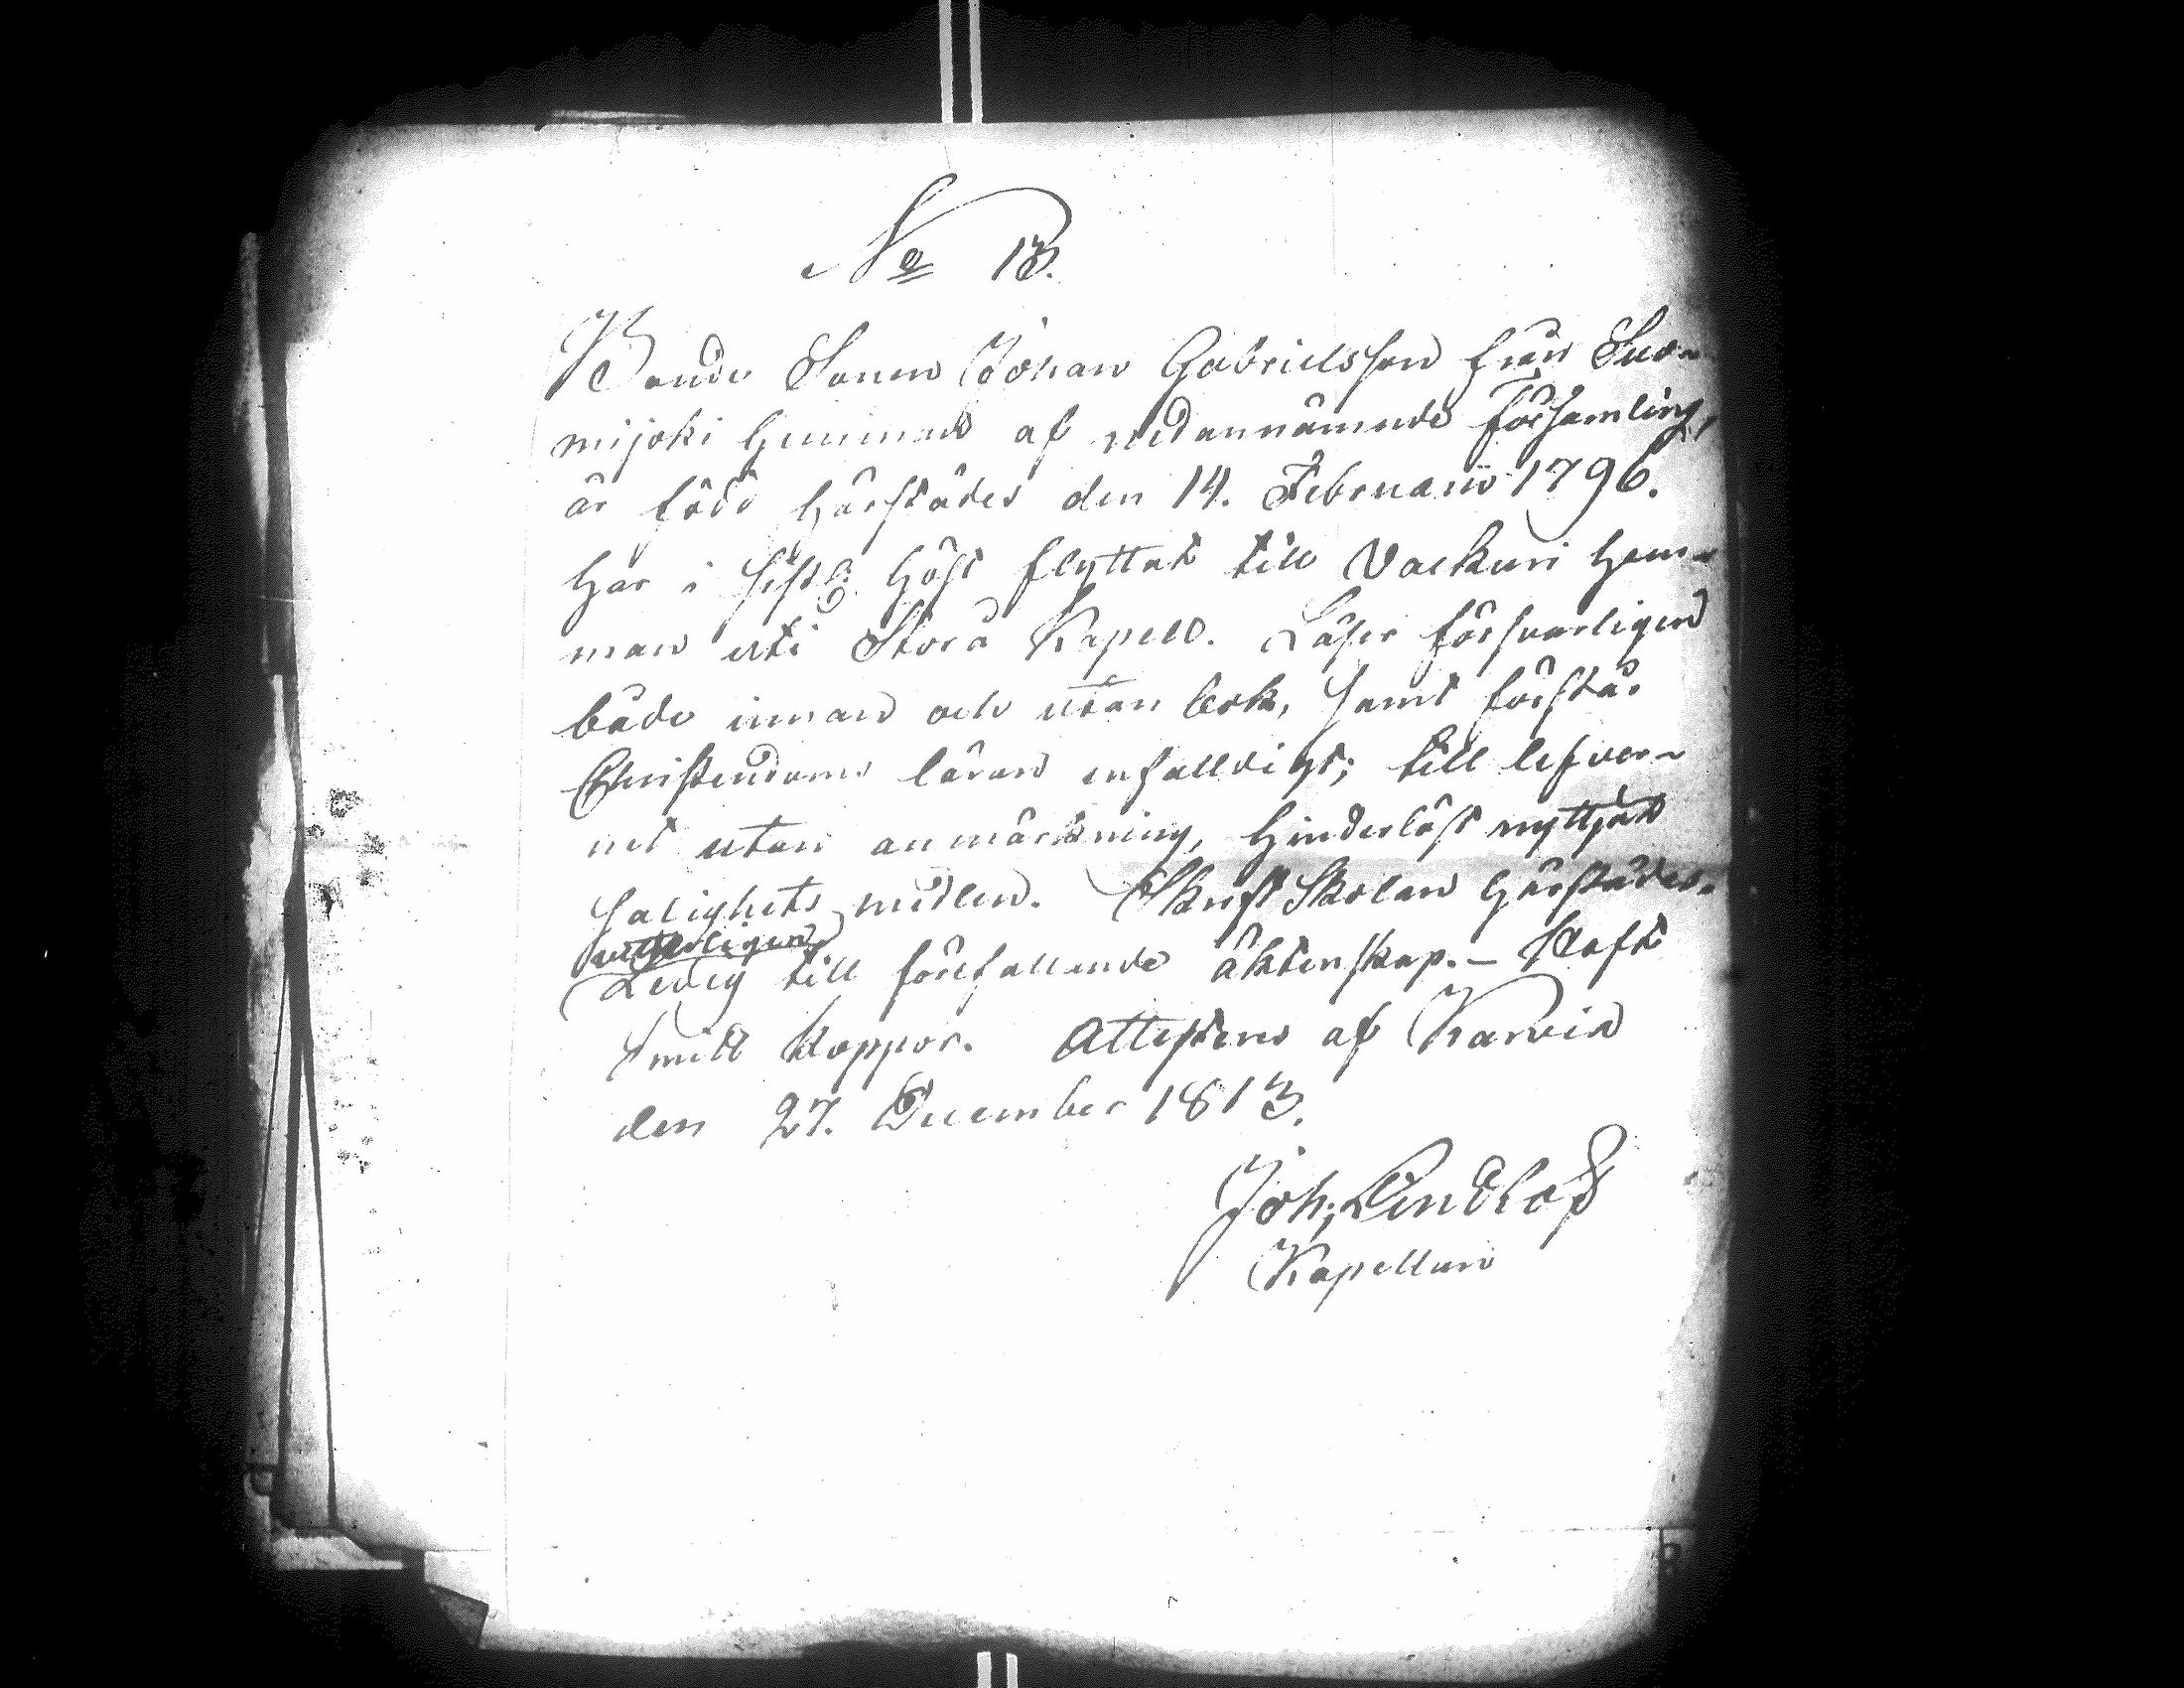 No 13.
Bonde Sonen Johan Gabrielsson från Suo-
mijoki Hemman af nedannämnde Församling,
är född härstädes den 14. Februarii 1796.
Har i sistl: Höst flyttat till Vackuri Hem-
man uti Storå Kapell. Läser försvarligen
både innan och utan bok, samt förstår
Christendoms läran enfalldigt; till lefver-
net utan anmärkning, hinderlöst nyttjat
salighets medlen. Skrift Skolan härstädes.
vetterligen
Ledig till förefallande äktenskap. - Haft
smitt koppor. Attesteras af Karvia
den 27. December 1813.
Joh; Lindlöf
Kapellan